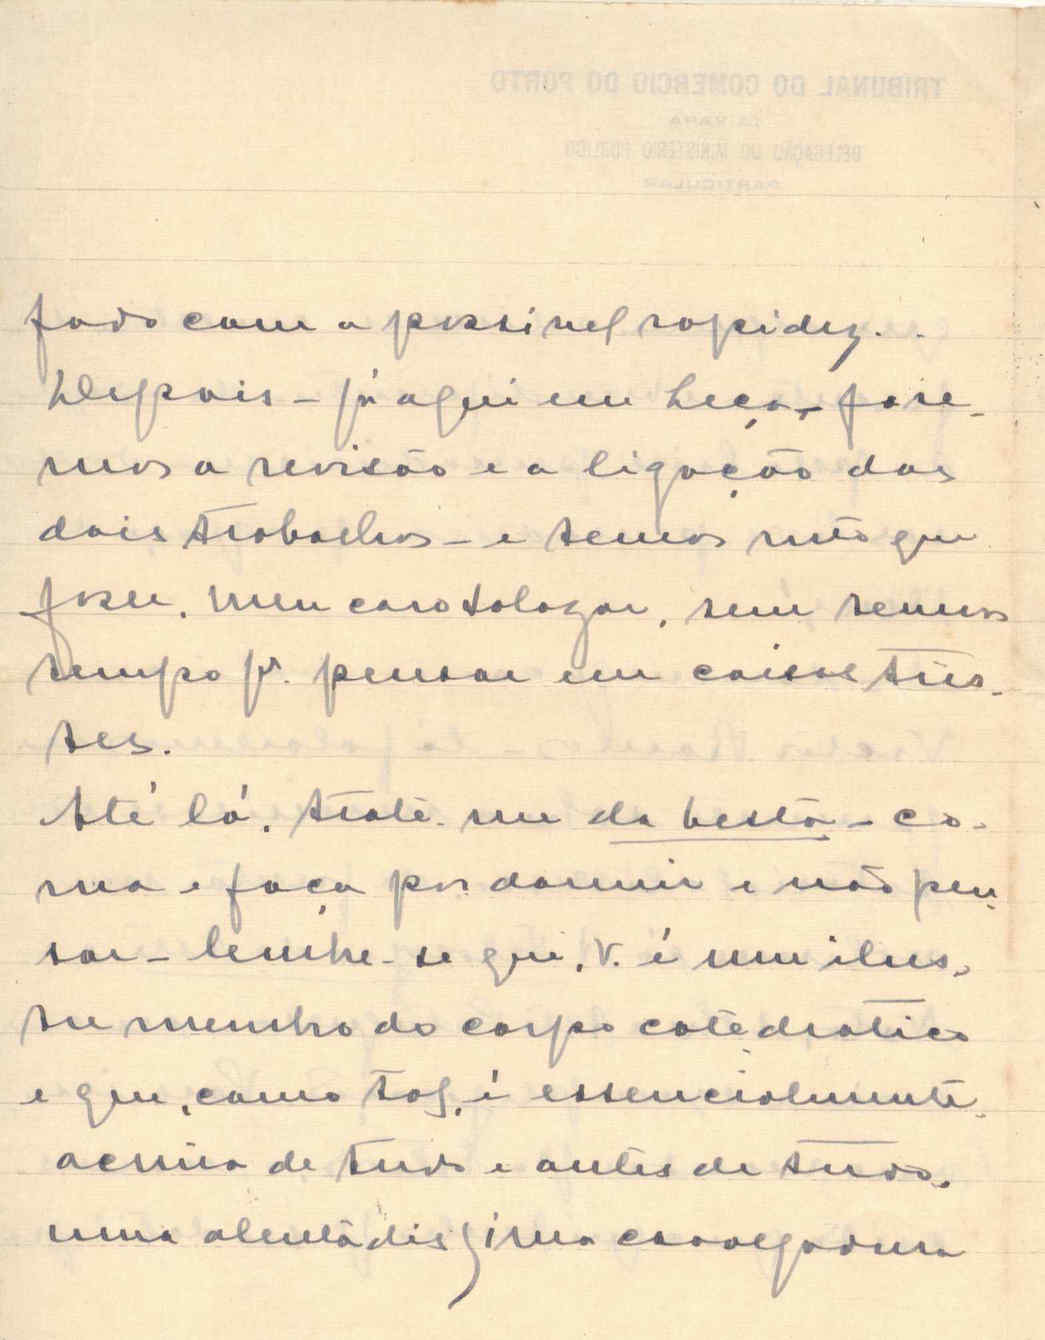 TRIBUNAL DO COMERCIO DO PORTO
DELEGAÇÃO DO MINISTÉRIO PÚBLICO
PARTICULAR
com a possivel rapidez.
Depois – já aqui em Leça – fare-
mos a revisão e a ligação dos
dois trabalhos – e temos mto que
fazer, meu caro Salazar, sem termos
tempo pa. pensar em coisas tris-
tes.
Até lá, trate-me da besta – co-
ma e faça por dormir e não pen-
sar – lembre-se que, V. é um ilus-
tre membro do corpo catedratico
e que, como tal, é essencialmente,
acima de tudo e antes de tudo,
uma alentadissima cavalgadura